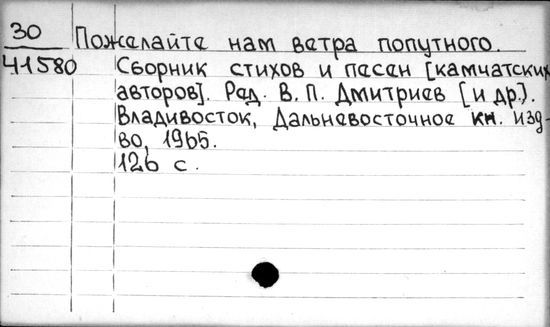 30 Пожелайте нам ветра попутного.
41580 Сборник стихов и песен [камчатских
авторов]. Ред. В. П. Дмитриев [и др.].
Владивосток, Дальневосточное кн. изд-
во, 1965.
126 с.